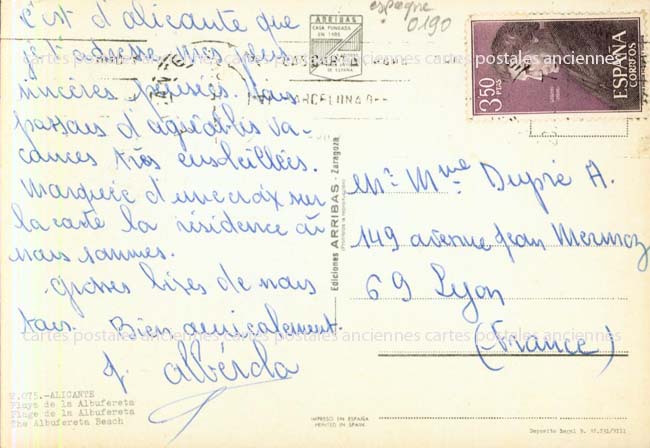 c'est d'alicante que
je t'adresse mes plus
sincères pensées. nous
passons d'agréables va-
cances très ensoleillées.
Marquée d'une croix sur
la carte la résidence où
nous sommes.
grosses bises de nous
tous. Bien amicalement.
J. albérola
V.075.-ALICANTE
Playa de la Albufereta
Plage de la Albufereta
The Albufereta Beach
espagne
0190
ARRIBAS
CASA FUNDADA
DE ESPAÑA
BARCELONA
3,50 PTAS
ESPAÑA
CORREOS
Ediciones ARRIBAS - Zaragoza
Mr Mme Dupré A.
149 avenue Jean Mermoz
69 Lyon
(France)
IMPRESO EN ESPAÑA
PRINTED IN SPAIN
cartes postales anciennes cartes postales anciennes cartes postales anciennes